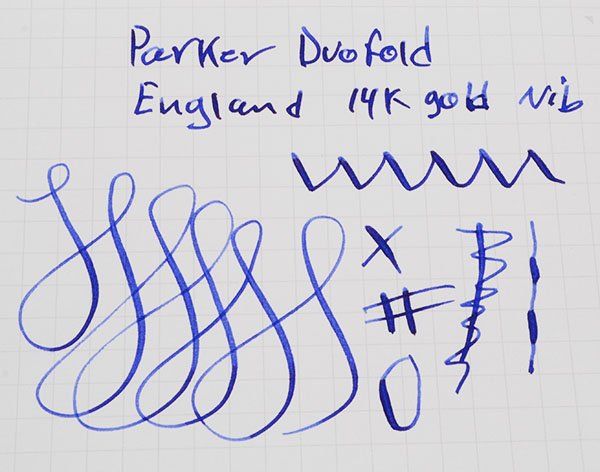 Parker Duofold
England 14K gold Nib
X
#
0